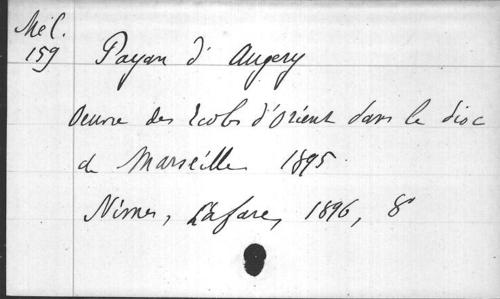 Mél.
159
Payan d' Augery
Oeuvre des Ecoles d'Orient dans le dioc
de Marseille 1895.
Nimes, Lafare, 1896, 8°